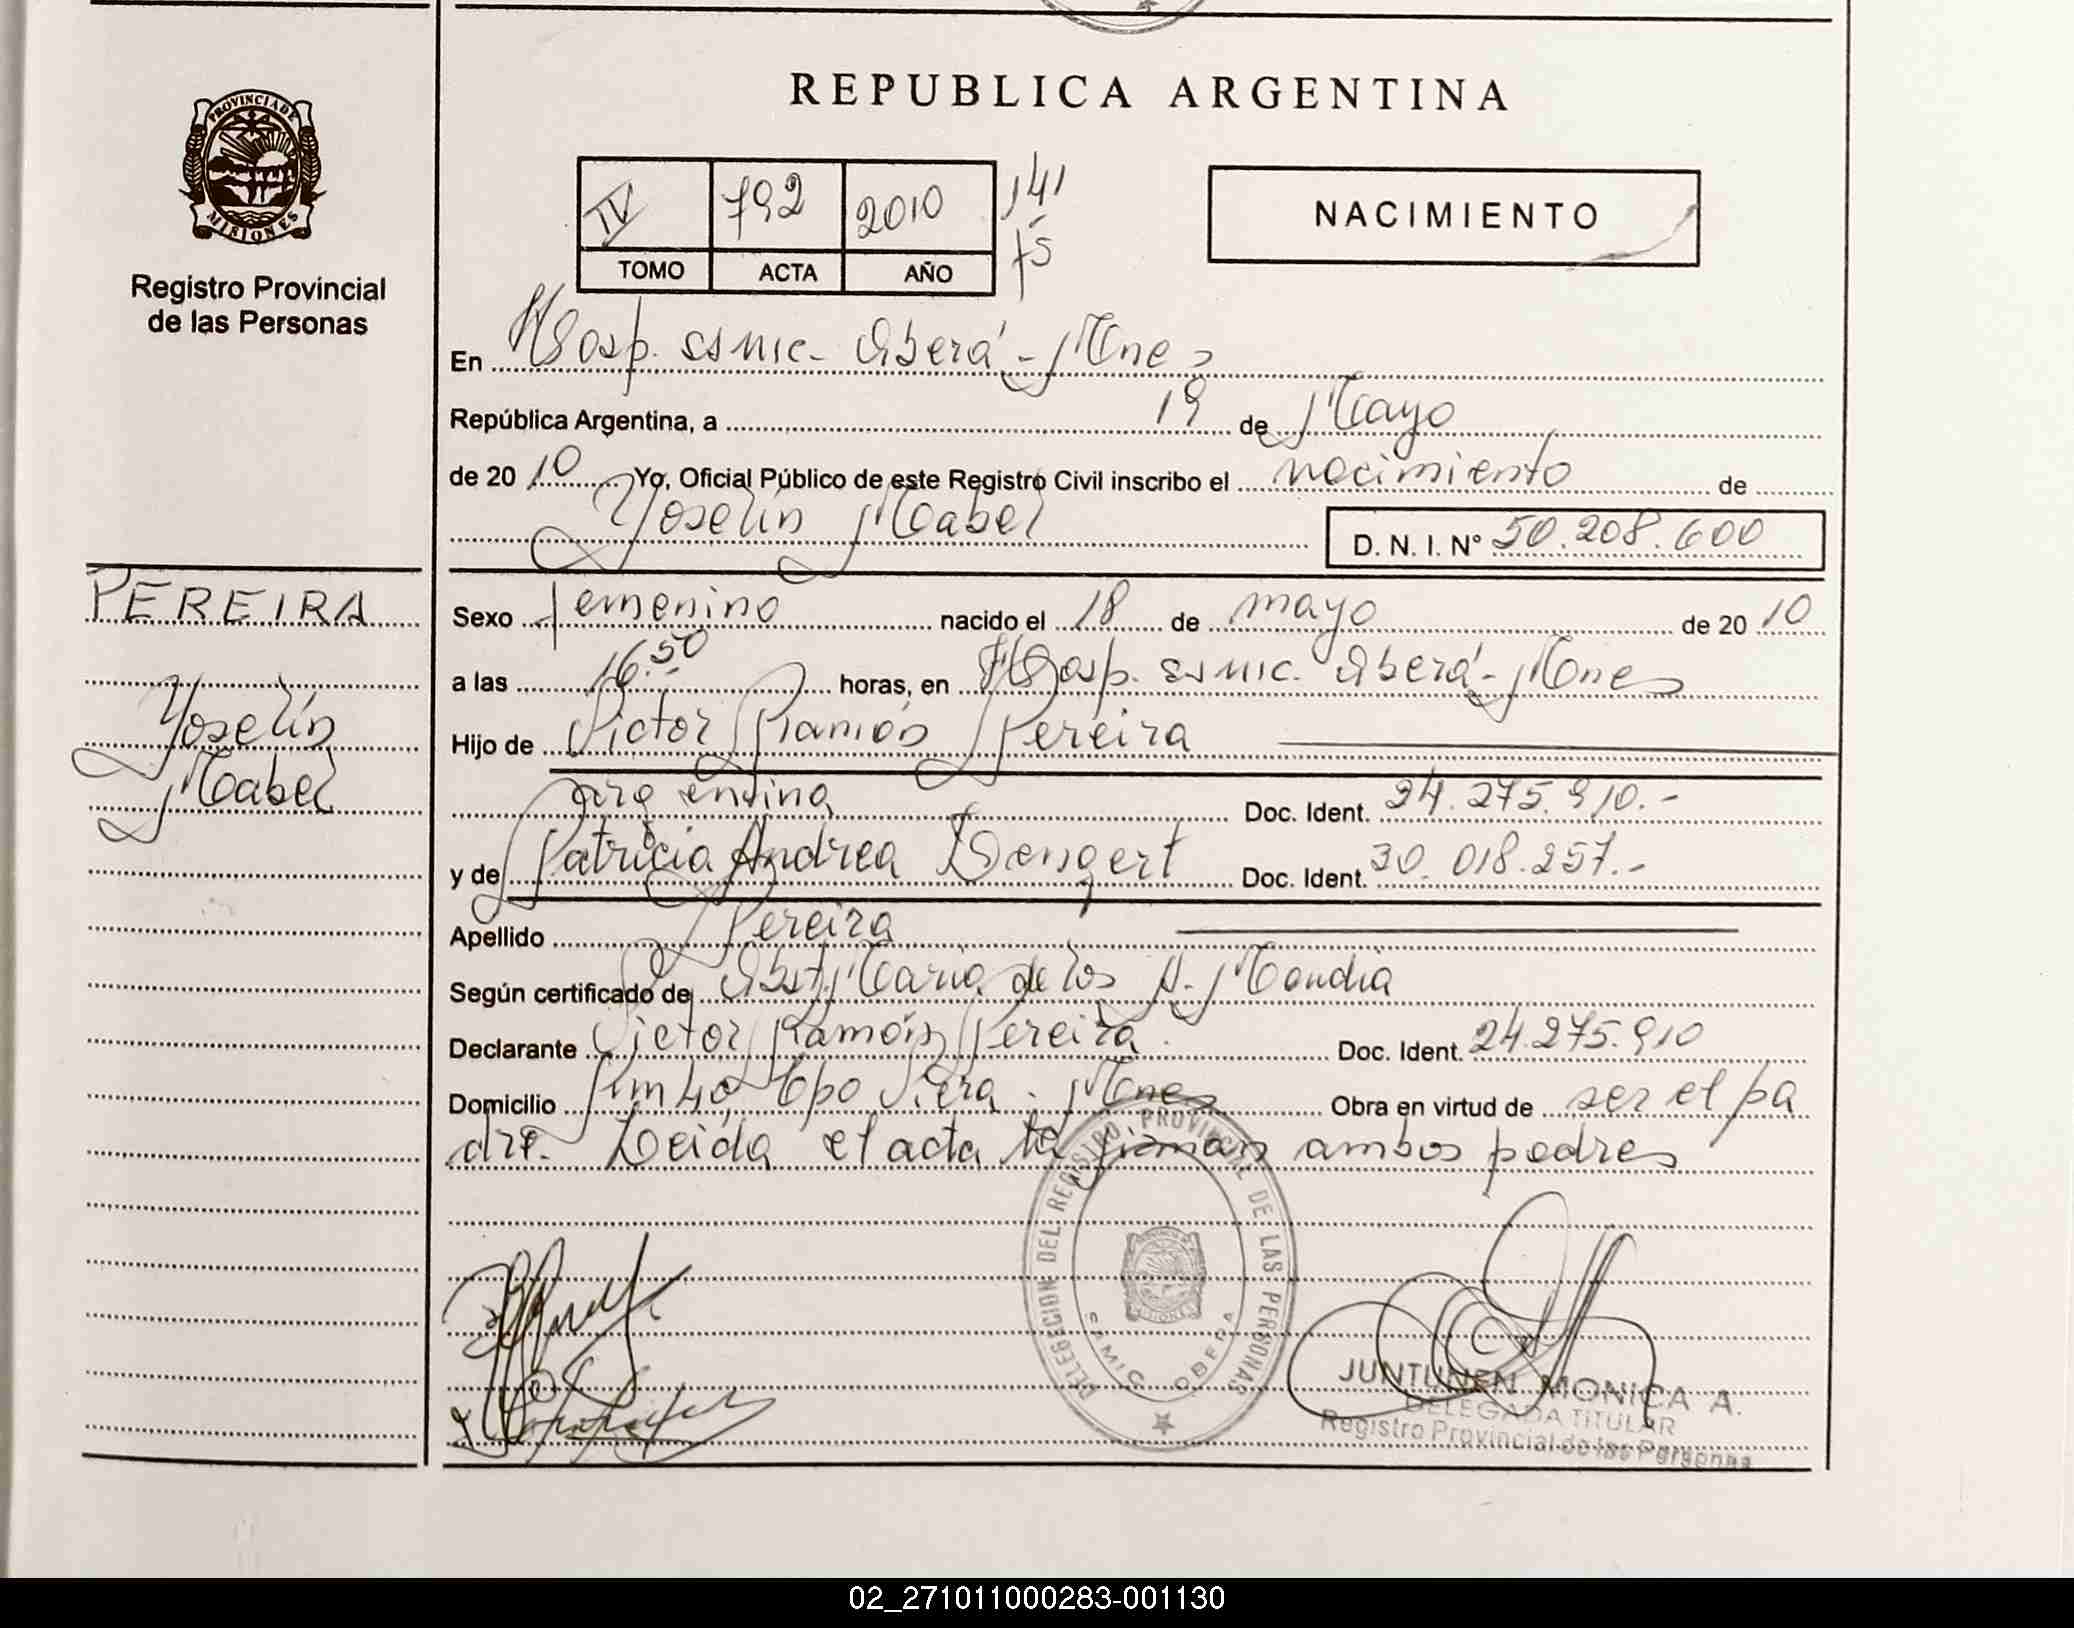 REPUBLICA ARGENTINA
PROVINCIA DE
MISIONES
Registro Provincial
de las Personas
IV 792 2010 141
TOMO ACTA AÑO 75
NACIMIENTO
En Hosp. SAMIC - Oberá - Mnes
República Argentina, a 19 de Mayo
de 2010 Yo, Oficial Público de este Registro Civil inscribo el nacimiento de
Yoselín Mabel D. N. I. N° 50.208.600
PEREIRA
Yoselín
Mabel
Sexo femenino nacido el 18 de mayo de 2010
a las 16.50 horas, en Hosp. SAMIC. Oberá - Mnes
Hijo de Victor Ramón Pereira
argentina Doc. Ident. 24.275.910.-
y de Patricia Andrea Doc. Ident. 30.018.257.-
Apellido Pereira
Según certificado de Obst. Maria de los A.
Declarante Victor Ramón Pereira. Doc. Ident. 24.275.910
Domicilio Mnes Obra en virtud de ser el pa
dre. Leida el acta la firman ambos padres
DELEGECION DEL REGISTRO PROVINCIAL DE LAS PERSONAS
SAMIC OBERA
JUNTUNEN MONICA A.
DELEGADA TITULAR
Registro Provincial de las Personas
02_271011000283-001130